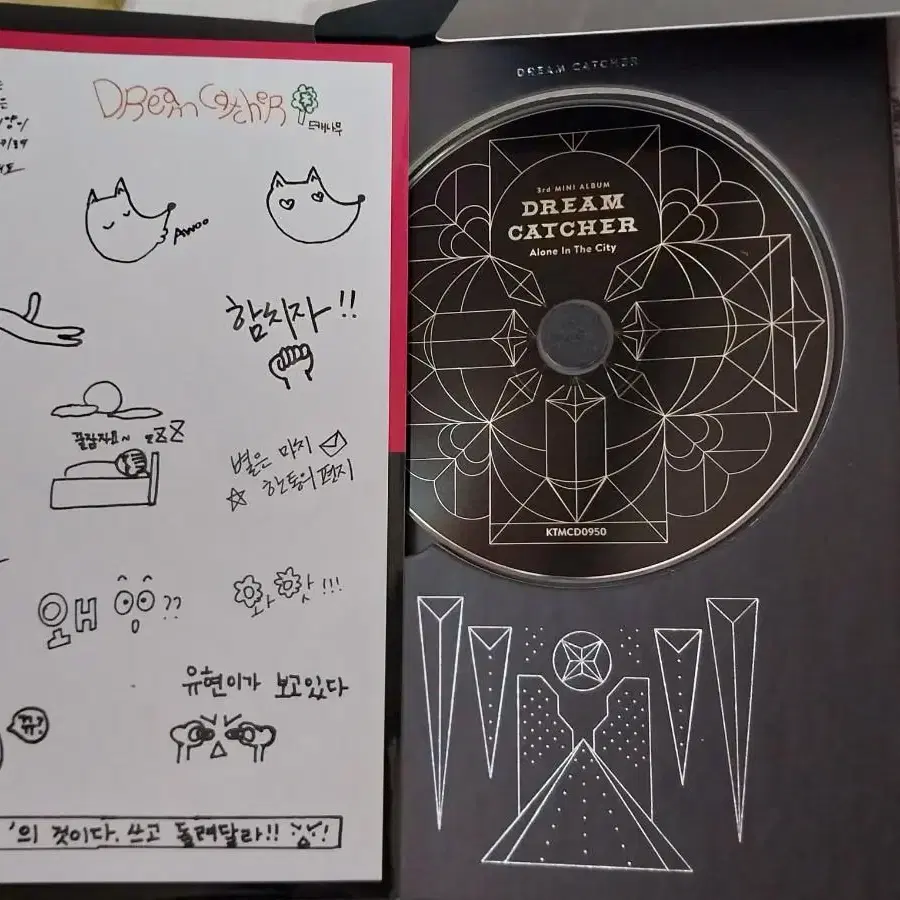 Dream Catcher
드캐나무
Awoo
함치자!!
꿀잠자요~ zZZ
별은 마치
한통의 편지
왐배 ??
화핫!!!
유현이가 보고있다
뀨?
'의 것이다. 쓰고 돌려달라!!
DREAM CATCHER
3rd MINI ALBUM
DREAM
CATCHER
Alone In The City
KTMCD0950